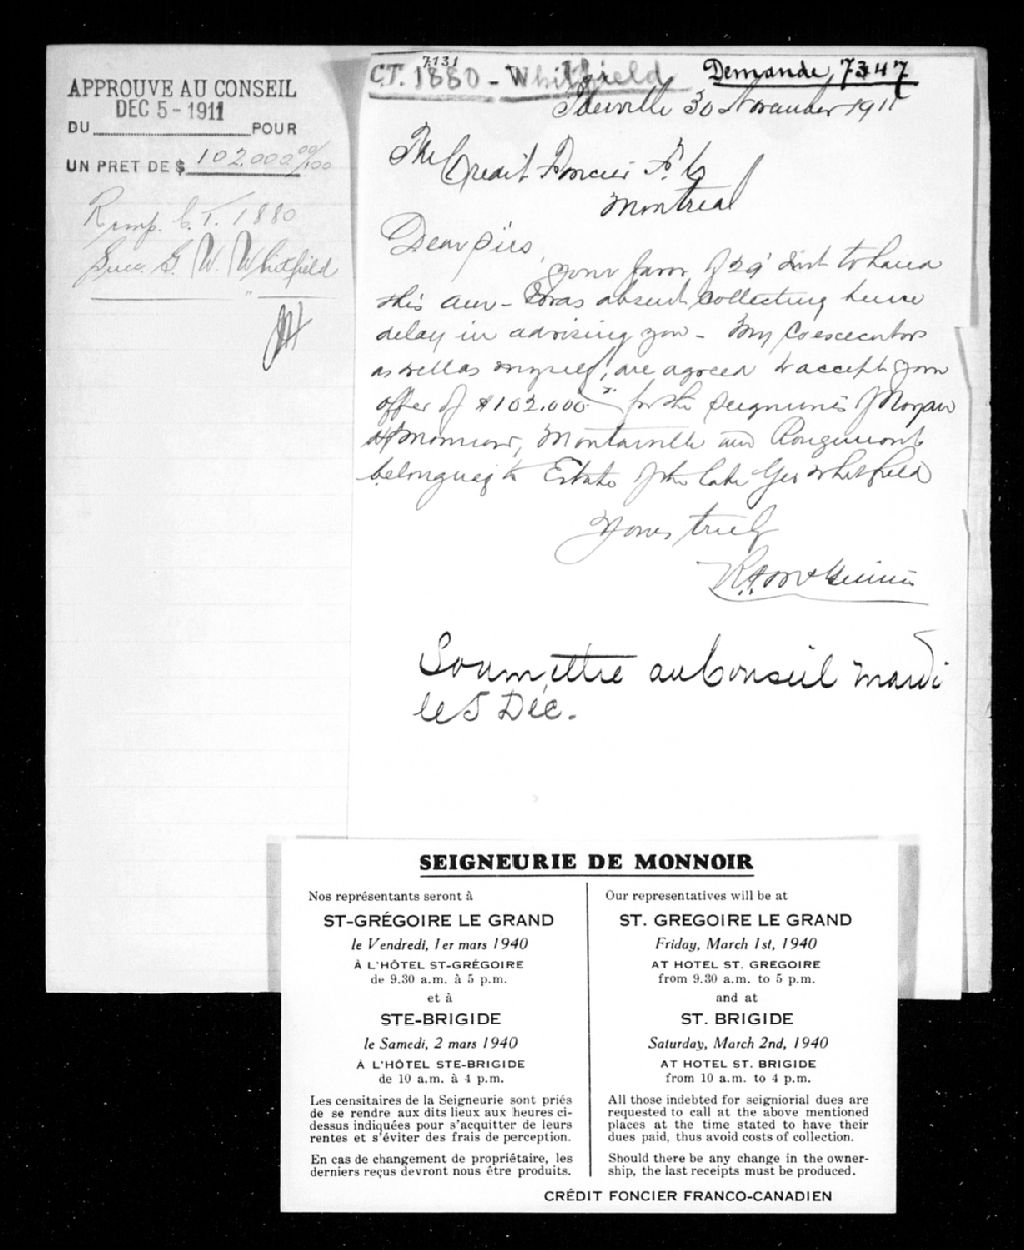 APPROUVE AU CONSEIL
DEC 5 - 1911
DU POUR
UN PRET DE $ 102,000 00/100
Remp. C.T. 1880
Succ. G. W. Whitfield
7131
CT. 1880 - Whitfield Demande, 7347
Iberville 30 November 1911
The Credit Foncier F. C
Montreal
Dear Sirs,
your favor of 29 Inst to hand
this am - was absent collecting hence
delay in advising you - My Coexecutors
as well as myself, are agreed to accept your
offer of $102.000 for the Seigniories of
Monnoir, and Rougemont
belonging to Estate of the late Geo Whitfield
Yours truly
Soumettre au Conseil mardi
le 5 Déc.
SEIGNEURIE DE MONNOIR
Nos représentants seront à
ST-GRÉGOIRE LE GRAND
le Vendredi, 1er mars 1940
À L'HÔTEL ST-GRÉGOIRE
de 9.30 a.m. à 5 p.m.
et à
STE-BRIGIDE
le Samedi, 2 mars 1940
À L'HÔTEL STE-BRIGIDE
de 10 a.m. à 4 p.m.
Les censitaires de la Seigneurie sont priés
de se rendre aux dits lieux aux heures ci-
dessus indiquées pour s'acquitter de leurs
rentes et s'éviter des frais de perception.
En cas de changement de propriétaire, les
derniers reçus devront nous être produits.
Our representatives will be at
ST. GREGOIRE LE GRAND
Friday, March 1st, 1940
AT HOTEL ST. GREGOIRE
from 9.30 am. to 5 p.m.
and at
ST. BRIGIDE
Saturday, March 2nd, 1940
AT HOTEL ST. BRIGIDE
from 10 a.m. to 4 p.m.
All those indebted for seigniorial dues are
requested to call at the above mentioned
places at the time stated to have their
dues paid, thus avoid costs of collection.
Should there be any change in the owner-
ship, the last receipts must be produced.
CRÉDIT FONCIER FRANCO-CANADIEN